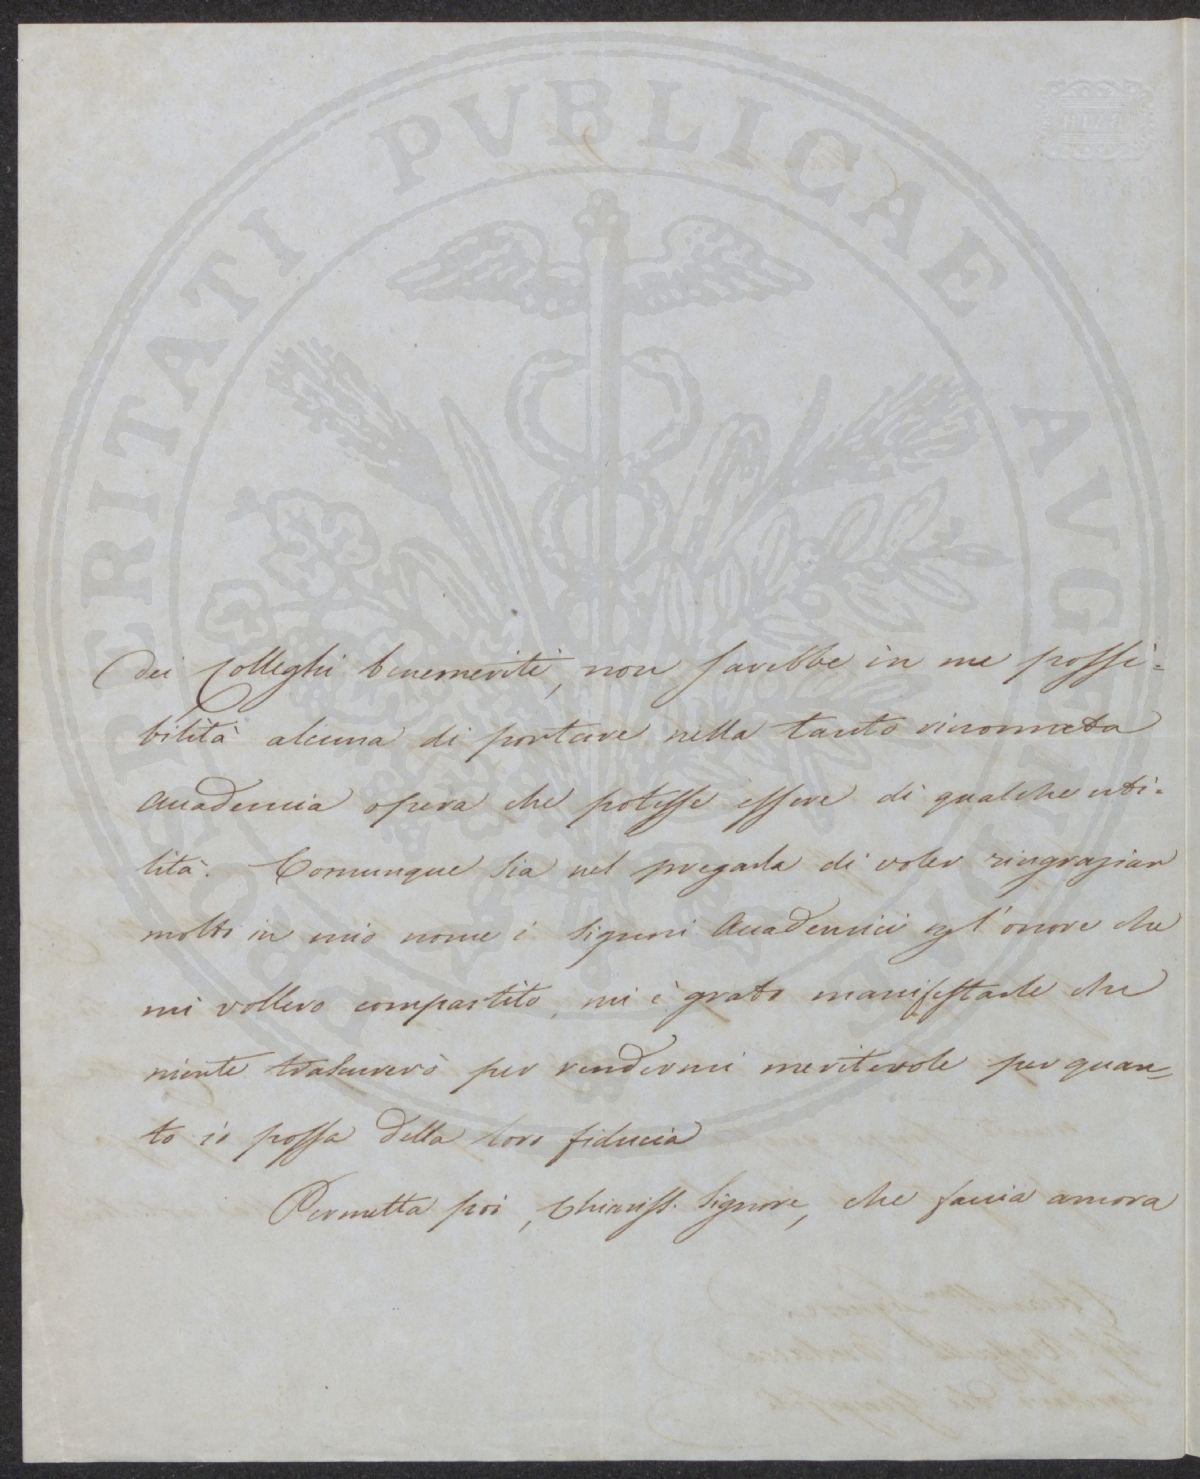 PROSPERITATI PVBLICAE AVGENDAE
BATH
dei Colleghi benemeriti, non sarebbe in me possi=
bilità alcuna di portare nella tanto rinomata
Accademia opera che potesse essere di qualche uti=
lità. Comunque sia nel pregarla di voler ringraziar
molto in mio nome i Signori Accademici dell'onore che
mi vollero compartito, mi è grato manifestarle che
niente trascurerò per rendermi meritevole per quan=
to io possa della loro fiducia
Permetta poi, Chiariss. Signore, che faccia ancora